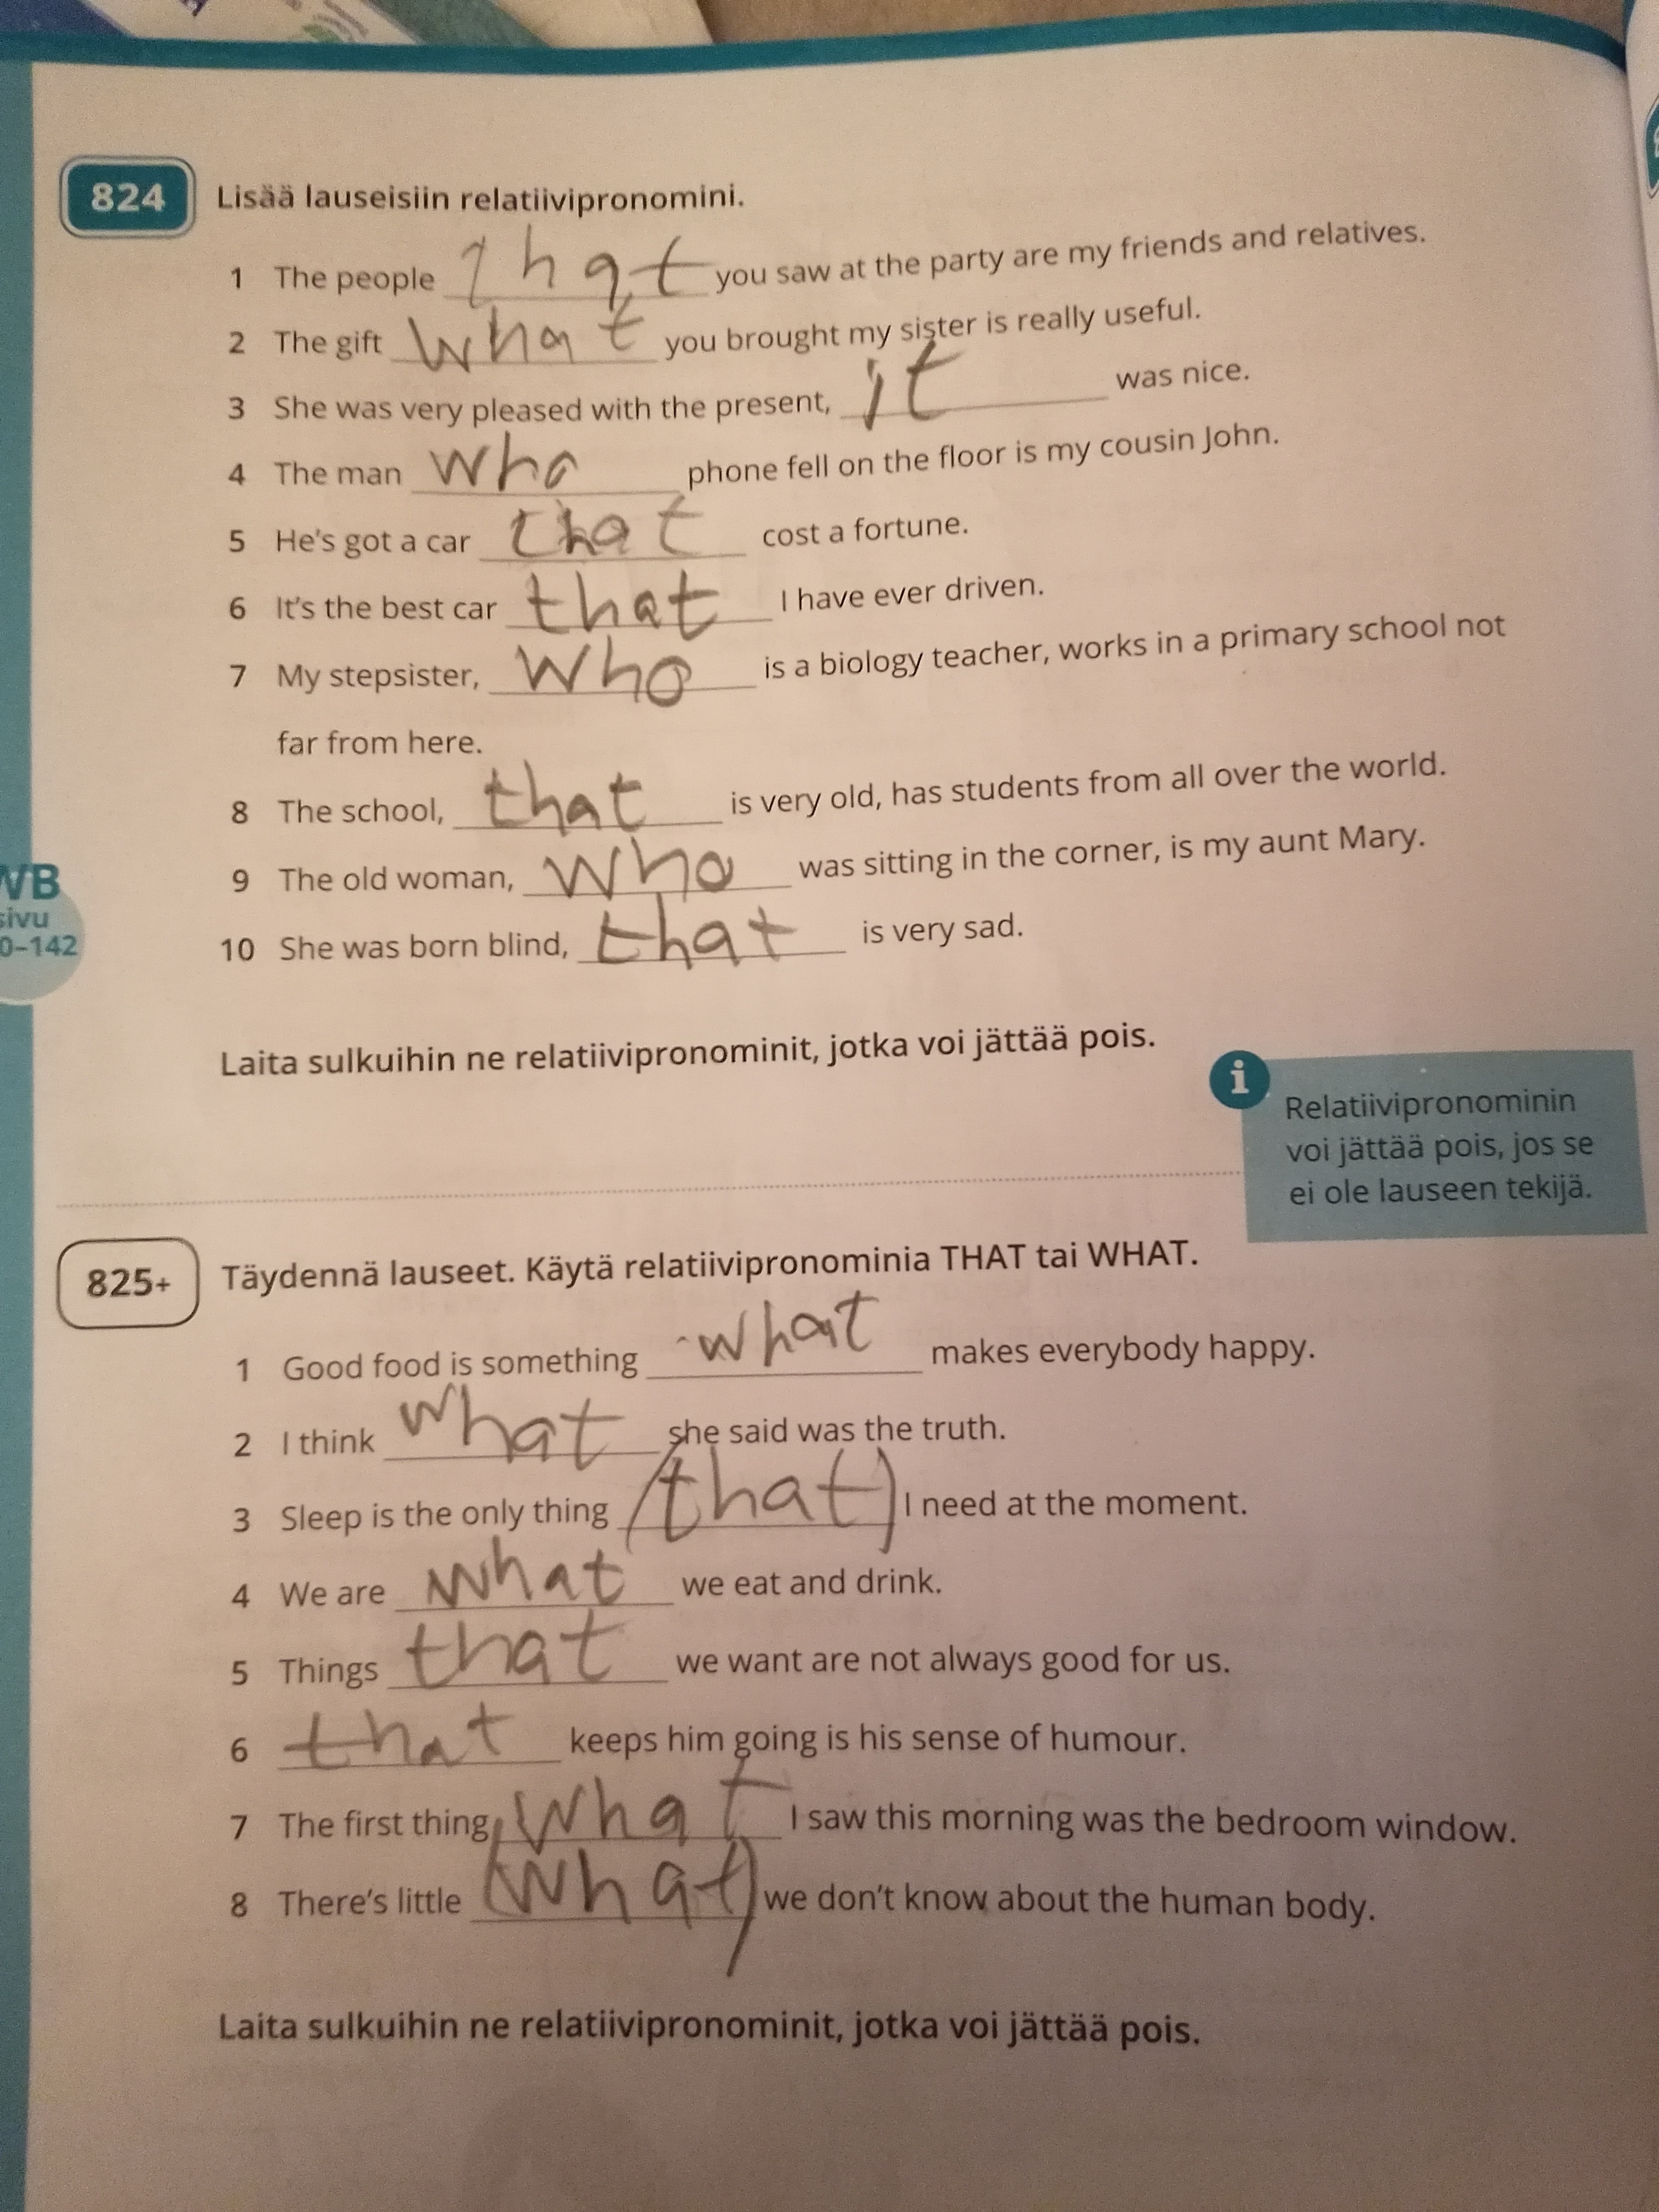 824 Lisää lauseisiin relatiivipronomini.
1 The people that you saw at the party are my friends and relatives.
2 The gift what you brought my sister is really useful.
3 She was very pleased with the present, it was nice.
4 The man who phone fell on the floor is my cousin John.
5 He's got a car that cost a fortune.
6 It's the best car that I have ever driven.
7 My stepsister, who is a biology teacher, works in a primary school not
far from here.
8 The school, that is very old, has students from all over the world.
9 The old woman, who was sitting in the corner, is my aunt Mary.
10 She was born blind, that is very sad.
WB
sivu
0–142
Laita sulkuihin ne relatiivipronominit, jotka voi jättää pois.
i
Relatiivipronominin
voi jättää pois, jos se
ei ole lauseen tekijä.
825+ Täydennä lauseet. Käytä relatiivipronominia THAT tai WHAT.
1 Good food is something what makes everybody happy.
2 I think what she said was the truth.
3 Sleep is the only thing (that) I need at the moment.
4 We are what we eat and drink.
5 Things that we want are not always good for us.
6 that keeps him going is his sense of humour.
7 The first thing what I saw this morning was the bedroom window.
8 There's little (what) we don't know about the human body.
Laita sulkuihin ne relatiivipronominit, jotka voi jättää pois.